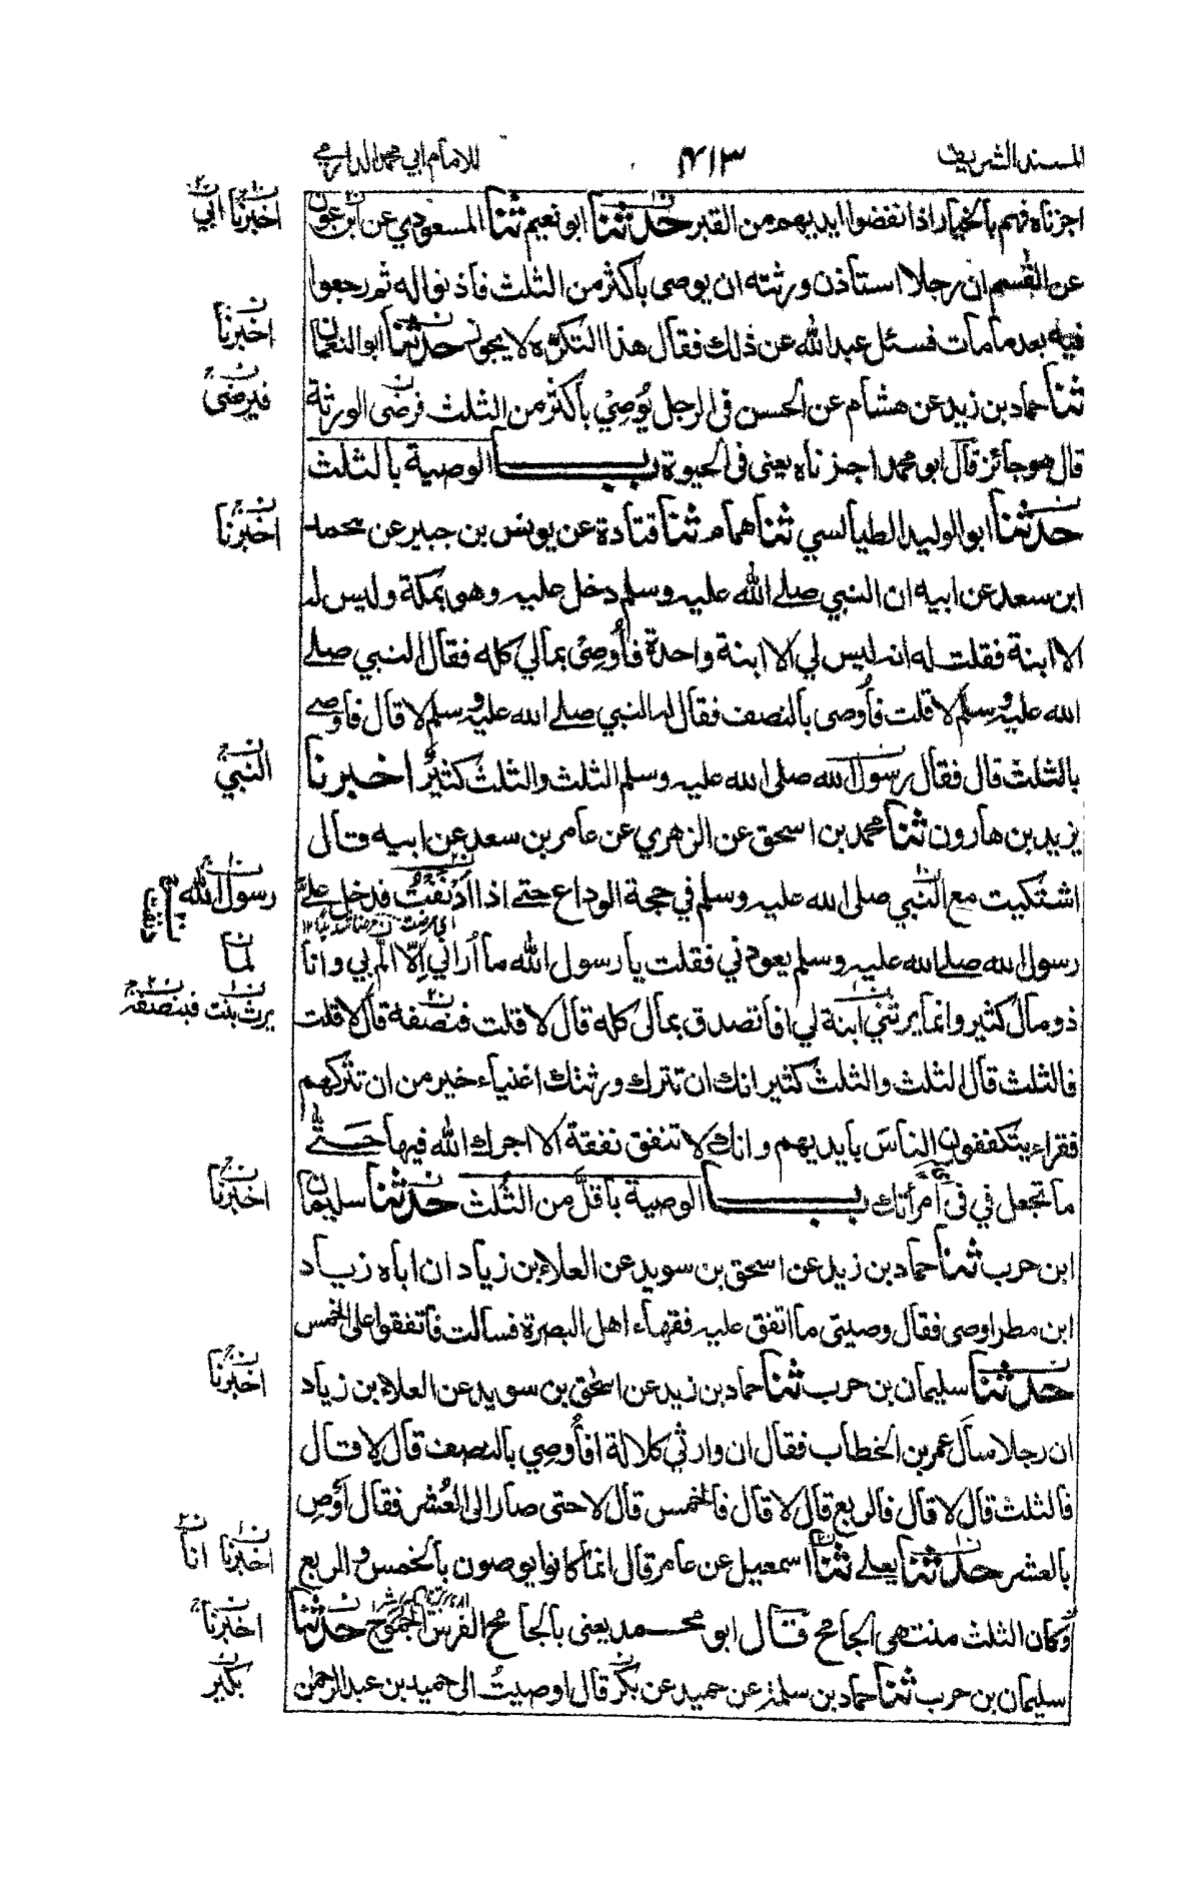 المسند الشريف
٤١٣
للامام ابي محمد الدارمي
اجزناه فهم بالخيار اذا نفضوا ايديهم من القبر حدثنا ابو نعيم ثنا المسعودي عن ابن عون
عن القسم ان رجلا استأذن ورثته ان يوصى بأكثر من الثلث فأذنوا له ثم رجعوا
فيه بعد ما مات فسئل عبد الله عن ذلك فقال هذا التكرّه لا يجوز حدثنا ابو النعمان
ثنا حماد بن زيد عن هشام عن الحسن في الرجل يُوصِيْ بأكثر من الثلث فرضى الورثة
قال هو جائز قال ابو محمد اجزناه يعنى في الحيوة باب الوصية بالثلث
حدثنا ابو الوليد الطيالسي ثنا همام ثنا قتادة عن يونس بن جبير عن محمد
ابن سعد عن ابيه ان النبي صلى الله عليه وسلم دخل عليه وهو بمكة وليس له
الا ابنة فقلت له انه ليس لي الا ابنة واحدة فأُوصِىْ بمالي كله فقال النبي صلى
الله عليه وسلم لا قلت فأُوصى بالنصف فقال له النبي صلى الله عليه وسلم لا قال فأوصى
بالثلث قال فقال رسول الله صلى الله عليه وسلم الثلث والثلث كثيرٌ اخبرنا
يزيد بن هارون ثنا محمد بن اسحق عن الزهري عن عامر بن سعد عن ابيه قال
اشتكيت مع النبي صلى الله عليه وسلم في حجة الوداع حتى اذا ادنفت فدخل عليَّ
رسول الله صلى الله عليه وسلم يعودني فقلت يا رسول الله ما أُراني اِلّا المّ بي وانا
ذو مال كثير وانما يرثني ابنة لي افأتصدق بمالى كله قال لا قلت فنصفه قال لا قلت
فالثلث قال الثلث والثلث كثير انك ان تترك ورثتك اغنياء خير من ان تتركهم
فقراء يتكففون الناس بايديهم وانك لا تنفق نفقة الا اجرك الله فيها حتى
ما تجعل في في امرأتك باب الوصية بأقلَّ من الثُلث حدثنا سليمان
ابن حرب ثنا حماد بن زيد عن اسحق بن سويد عن العلاء بن زياد ان اباه زياد
ابن مطر اوصى فقال وصيتى ما اتفق عليه فقهاء اهل البصرة فسألت فاتفقوا على الخمس
حدثنا سليمان بن حرب ثنا حماد بن زيد عن اسحق بن سويد عن العلاء بن زياد
ان رجلا سأل عمر بن الخطاب فقال ان وارثي كلالة افأُوصي بالنصف قال لا قال
فالثلث قال لا قال فالربع قال لا قال فالخمس قال لا حتى صار الى العُشر فقال اَوْصِ
بالعشر حدثنا يعلى ثنا اسمعيل عن عامر قال انما كانوا يوصون بالخمس والربع
وكان الثلث منتهى الجامح قال ابو محمد يعنى بالجامح الفرس الجموح حدثنا
سليمان بن حرب ثنا حماد بن سلمة عن حميد عن بكر قال اوصيتُ الى حميد بن عبد الرحمن
اخبرنا ابي
اخبرنا
فيرضى
اخبرنا
النبي
رسول الله
لما
يرث بنت فبنصفه
اخبرنا
اخبرنا
اخبرنا انا
اخبرنا
بكير